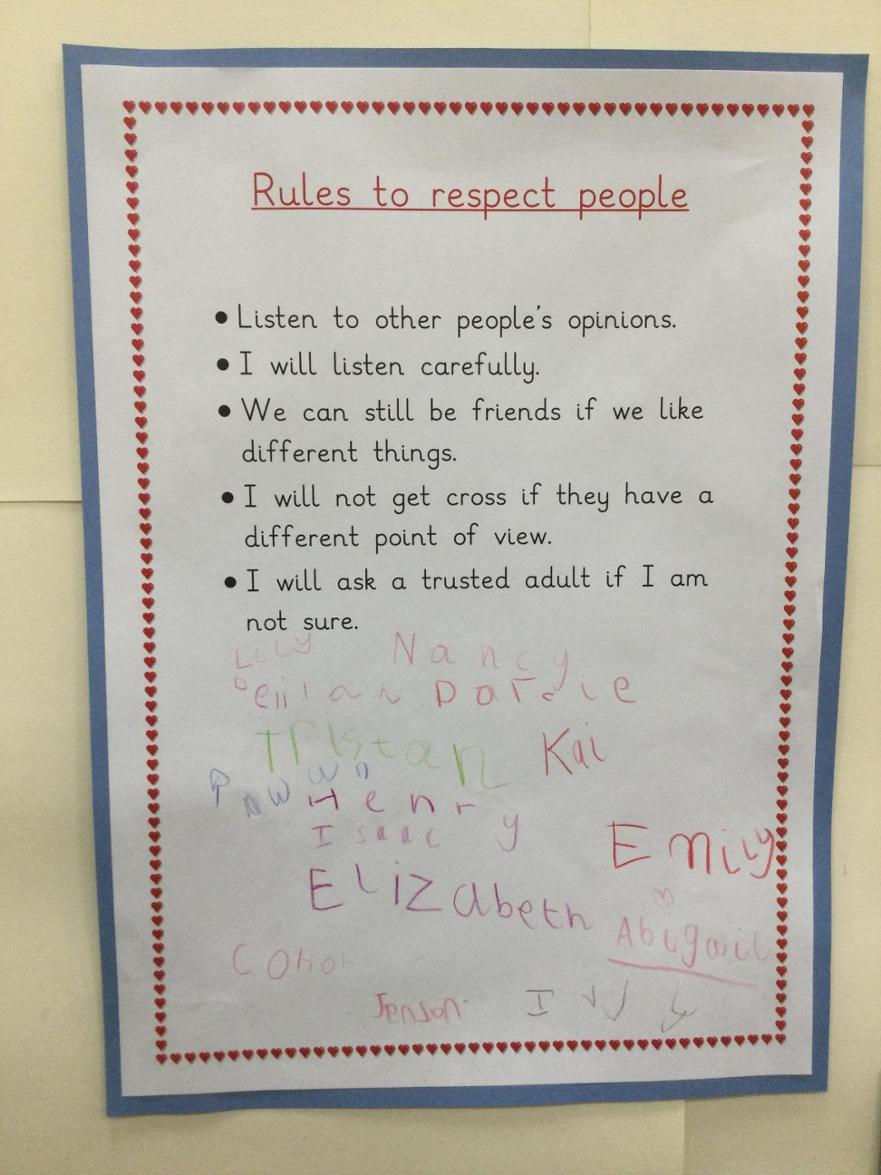 Rules to respect people
• Listen to other people's opinions.
• I will listen carefully.
• We can still be friends if we like
different things.
• I will not get cross if they have a
different point of view.
• I will ask a trusted adult if I am
not sure.
Lily Nancy
Darcie
Tristan Kai
Henry
Isaac
Emily
Elizabeth
Abigail
Jenson Ivy